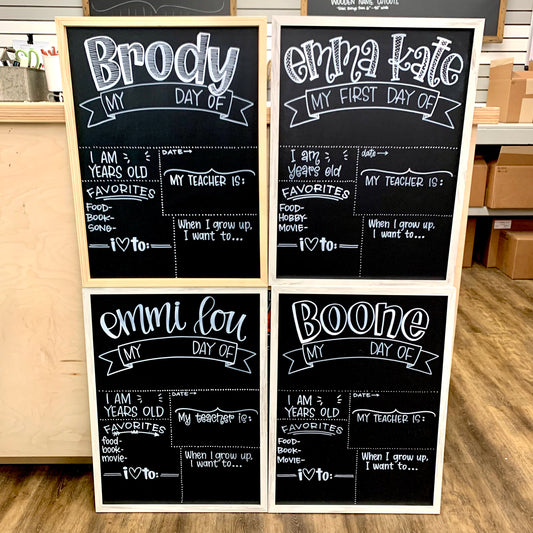 WOODEN NAME CUTOUTS
Brody
MY DAY OF
I AM
YEARS OLD
DATE→
FAVORITES
FOOD-
BOOK-
SONG-
MY TEACHER IS:
When I grow up,
I want to...
i♡to:
emma kate
MY FIRST DAY OF
I am
years old
date→
FAVORITES
FOOD-
HOBBY-
MOVIE-
MY TEACHER IS:
When I grow up,
I want to...
i♡to:
emmi lou
MY DAY OF
I AM
YEARS OLD
DATE→
FAVORITES
food-
book-
movie-
My teacher is:
When I grow up,
I want to...
i♡to:
Boone
MY DAY OF
I AM
YEARS OLD
DATE→
FAVORITES
FOOD-
BOOK-
MOVIE-
MY TEACHER IS:
When I grow up,
I want to...
i♡to: